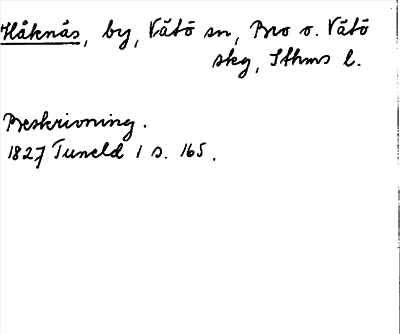 Håknäs, by, Vätö sn, Bro o. Vätö
skg, Sthms l.
Beskrivning.
1827 Tuneld 1 s. 165.